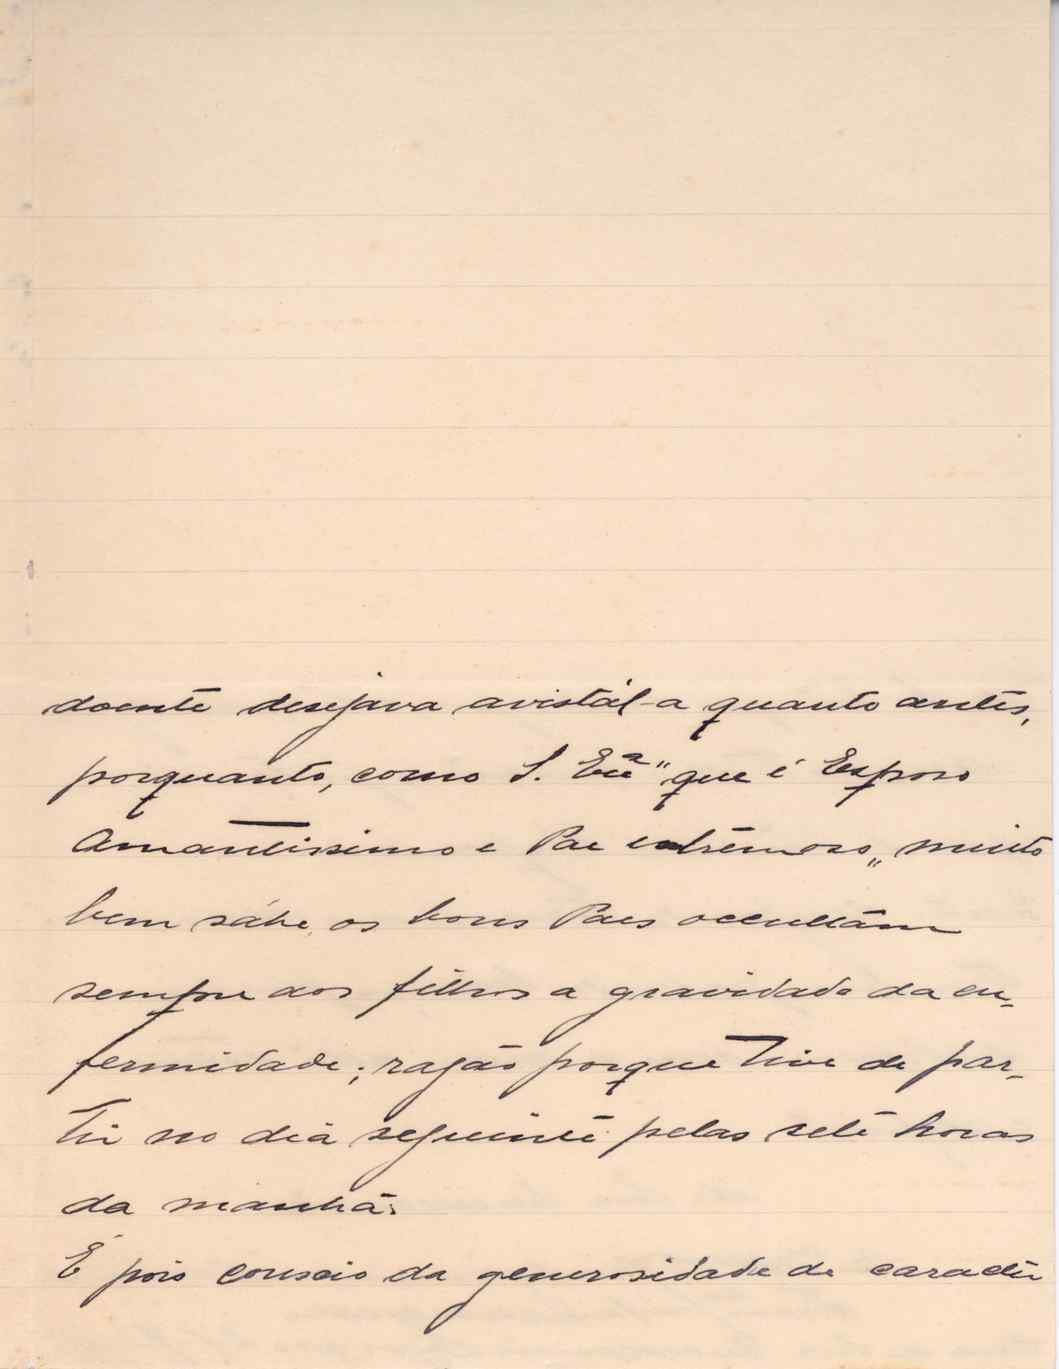 doente desejava avistál-a quanto antes,
porquanto, como S. Exª „ que é Esposo
Amantissimo e Pae extrêmoso „ muito
bem sábe, os bons Paes occultam
sempre aos filhos a gravidade da en-
fermidade; razão porque tive de par-
tir no dia seguinte pelas sete horas
da manhã.
É pois conscio da generosidade de caracter